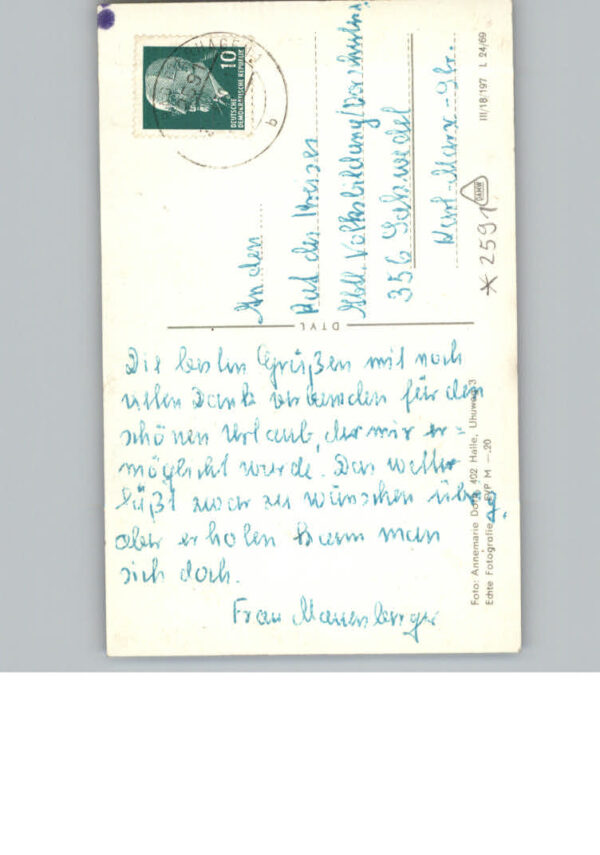 Die besten Grüßen mit noch
vielen Dank verbunden für den
schönen Urlaub, der mir er=
möglicht wurde. Das Wetter
läßt zwar zu wünschen übrig
aber erholen kann man
sich doch.
Frau Mauersberger
An den
Rat des Kreises
Abt. Volksbildung/Vorschulen
356 Salzwedel
Karl-Marx-Str.
DTVL
10
DEUTSCHE
DEMOKRATISCHE REPUBLIK
b
III/18/197 L 24/69
*2591
Foto: Annemarie 402 Halle, Uhuweg 3
Echte Fotografie EVP M —.20